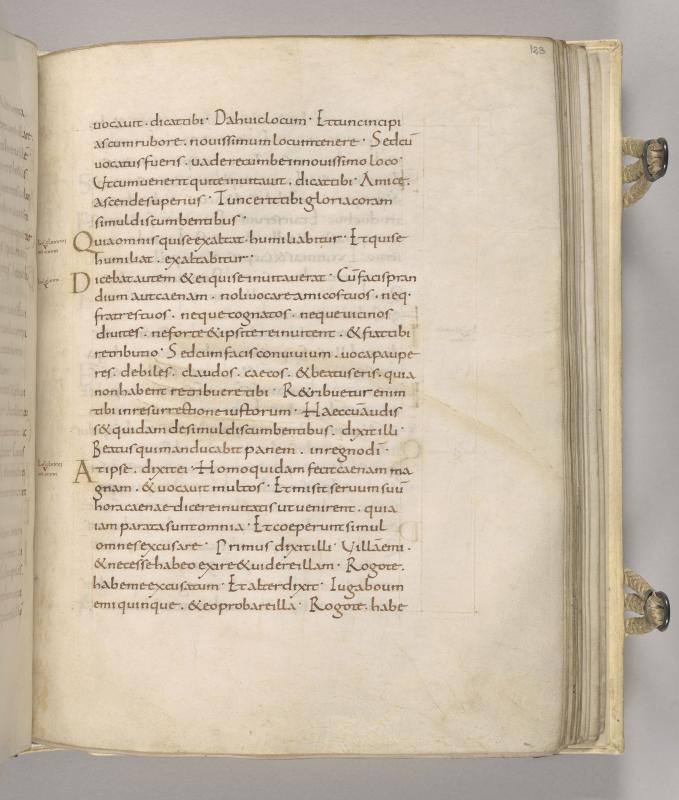 123
vocavit · dicat tibi · Da huic locum · Et tunc incipi
as cum rubore · novissimum locum tenere · Sed cū
vocatus fueris · vade recumbe in novissimo loco ·
Ut cum venerit qui te invitavit · dicat tibi · Amice ·
ascende superius · Tunc erit tibi gloria coram
simul discumbentibus ·
Quia omnis qui se exaltat · humiliabitur · Et qui se
humiliat · exaltabitur ·
Dicebat autem & ei qui se invitaverat · Cū facis pran
dium aut caenam · noli vocare amicos tuos · neq·
fratres tuos · neque cognatos · neque vicinos
divites · ne forte & ipsi te reinvitent · & fiat tibi
retributio · Sed cum facis convivium · voca paupe
res · debiles · claudos · caecos · & beatus eris · quia
non habent retribuere tibi · R&ribuetur enim
tibi in resurrectione iustorum · Haec cū audis
s& quidam de simul discumbentibus · dixit illi ·
Beatus qui manducabit panem · in regno dī ·
At ipse · dixit ei · Homo quidam fecit caenam ma
gnam · & vocavit multos · Et misit servum suū
hora caenae dicere invitatis ut venirent · quia
iam parata sunt omnia · Et coeperunt simul
omnes excusare · Primus dixit illi · Villā emi ·
& necesse habeo exire & videre illam · Rogo te ·
habe me excusatum · Et alter dixit · Iuga boum
emi quinque · & eo probare illa · Rogo te · habe